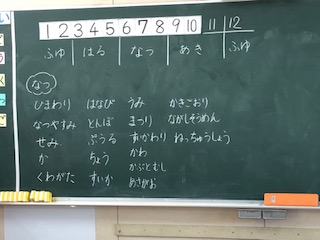 1 2 3 4 5 6 7 8 9 10 11 12
ふゆ はる なつ あき ふゆ
なつ
ひまわり はなび うみ かきごおり
なつやすみ とんぼ まつり ながしそうめん
せみ ぷうる すいかわり ねっちゅうしょう
か ちょう かわ
くわがた すいか かぶとむし
あさがお